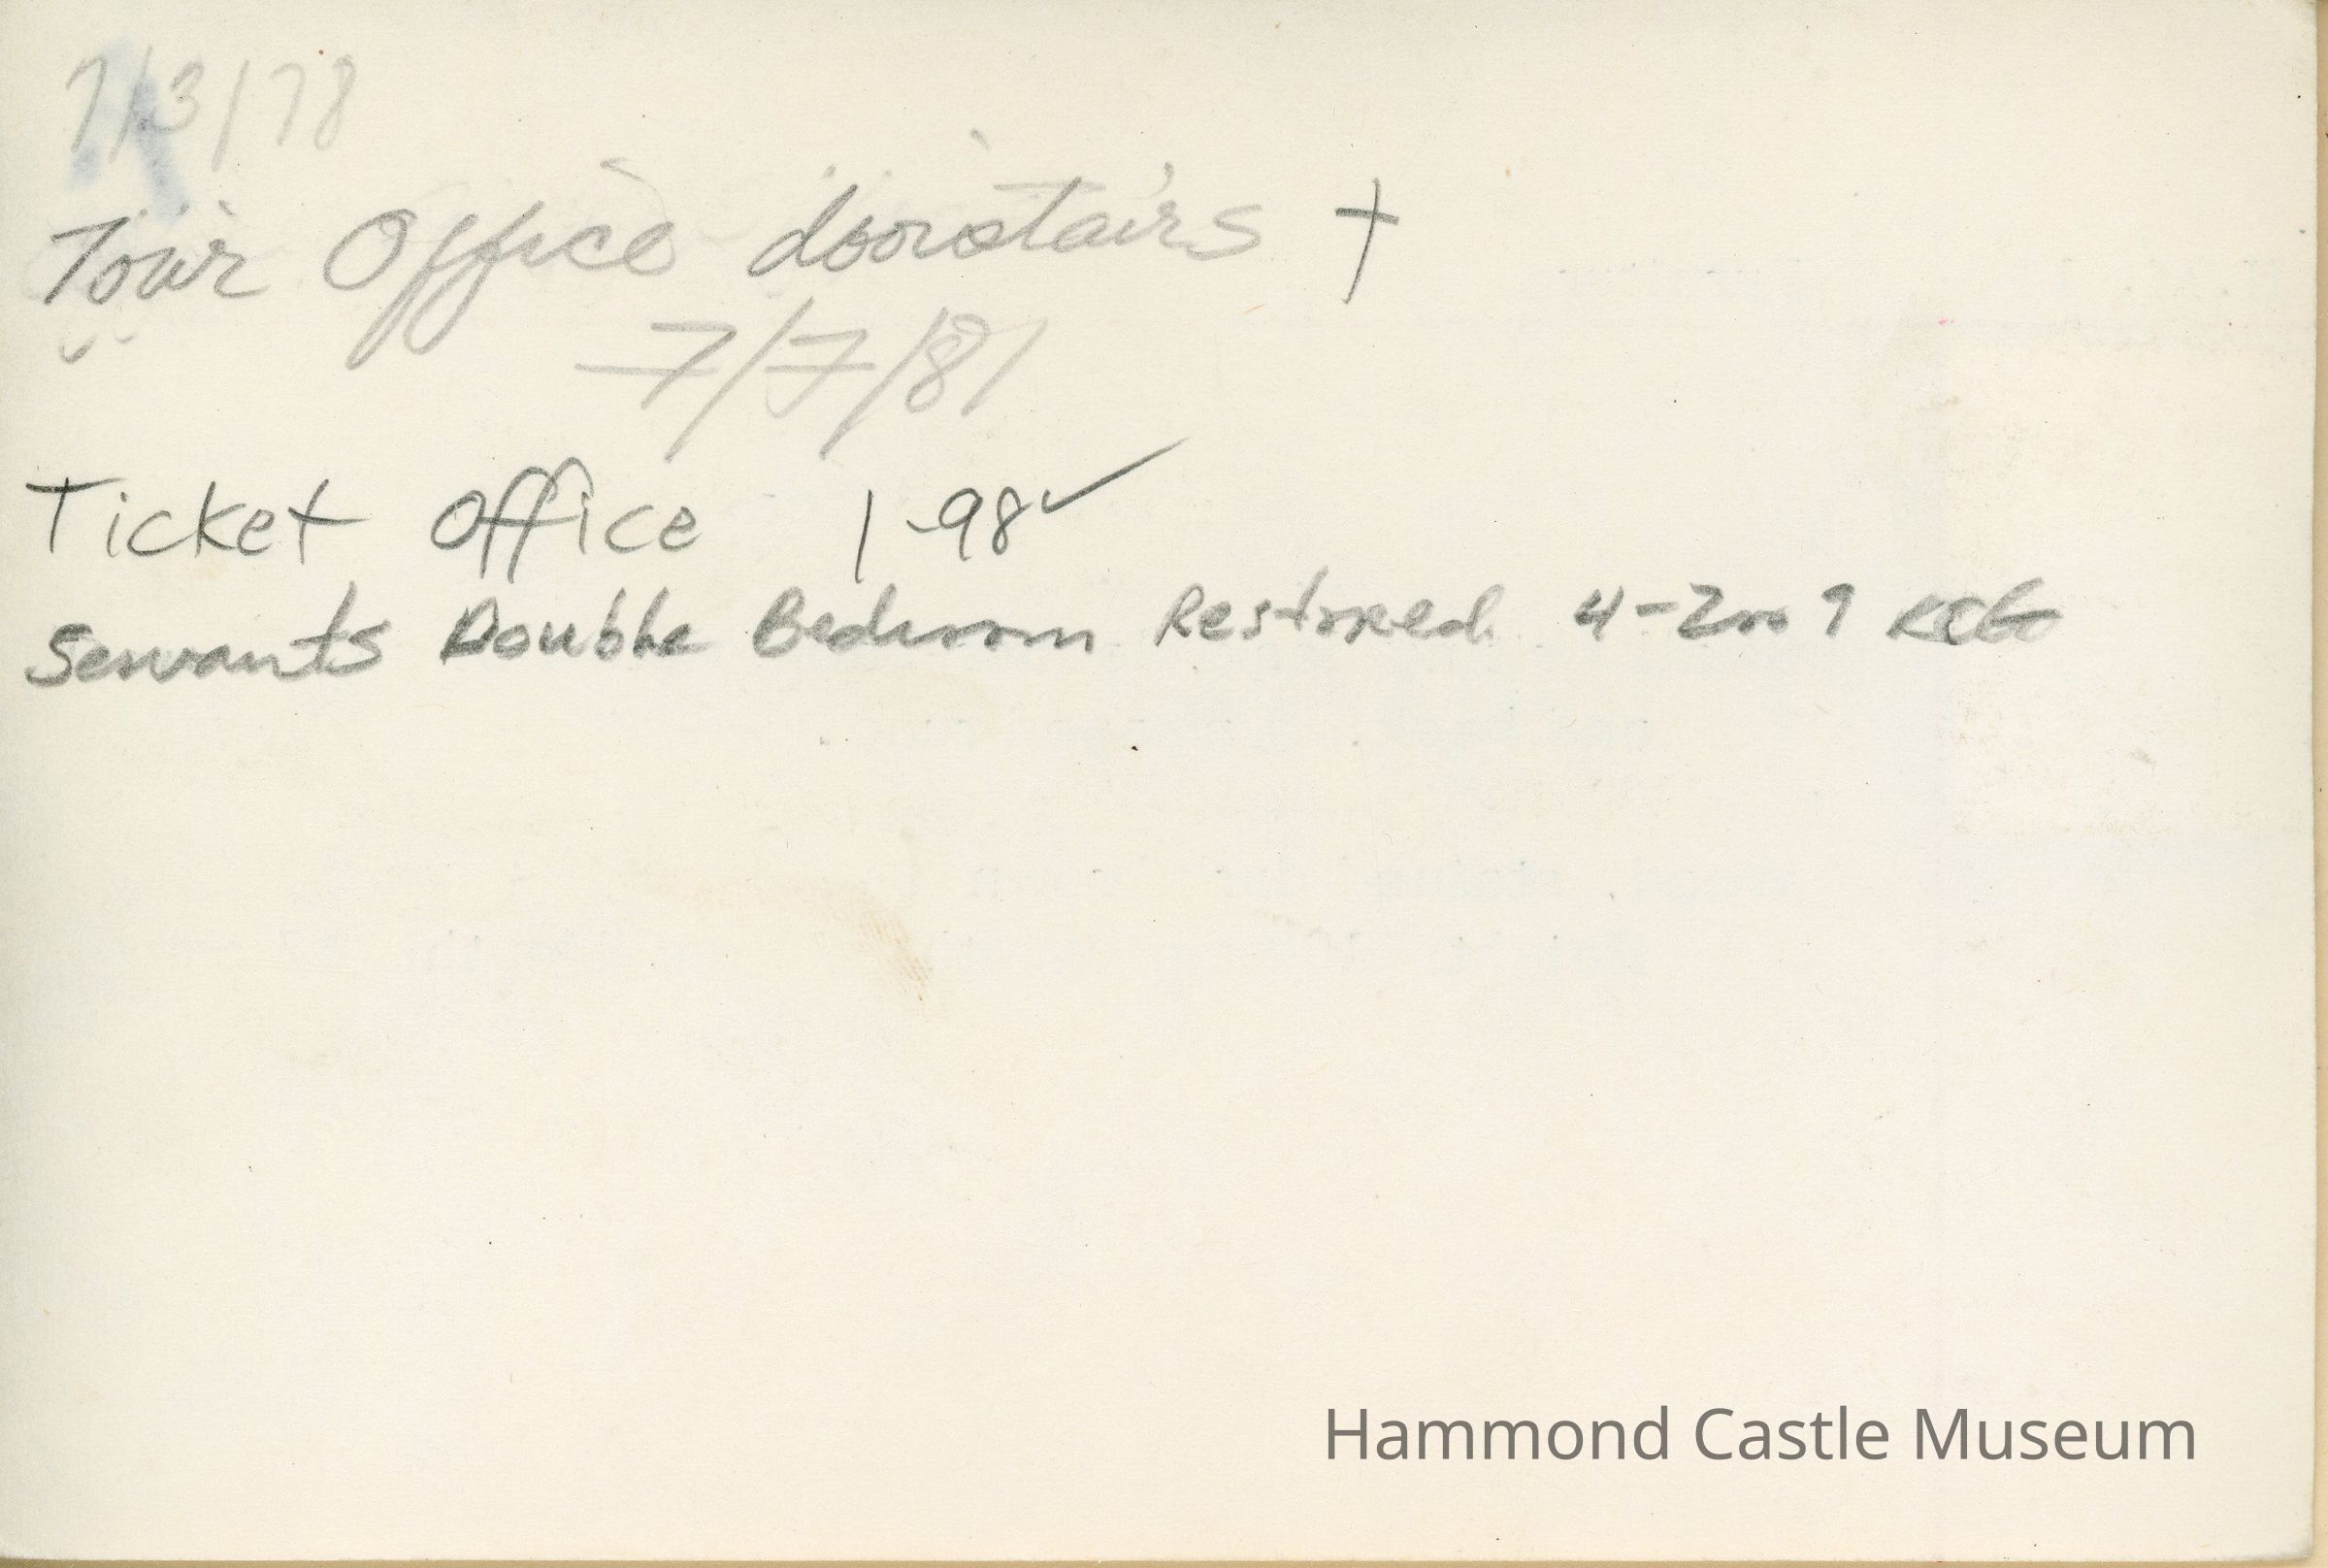 7/3/78
Tour Office downstairs +
7/7/81
Ticket Office 1-98 ✓
Servants Double Bedroom Restored 4-2009
Hammond Castle Museum